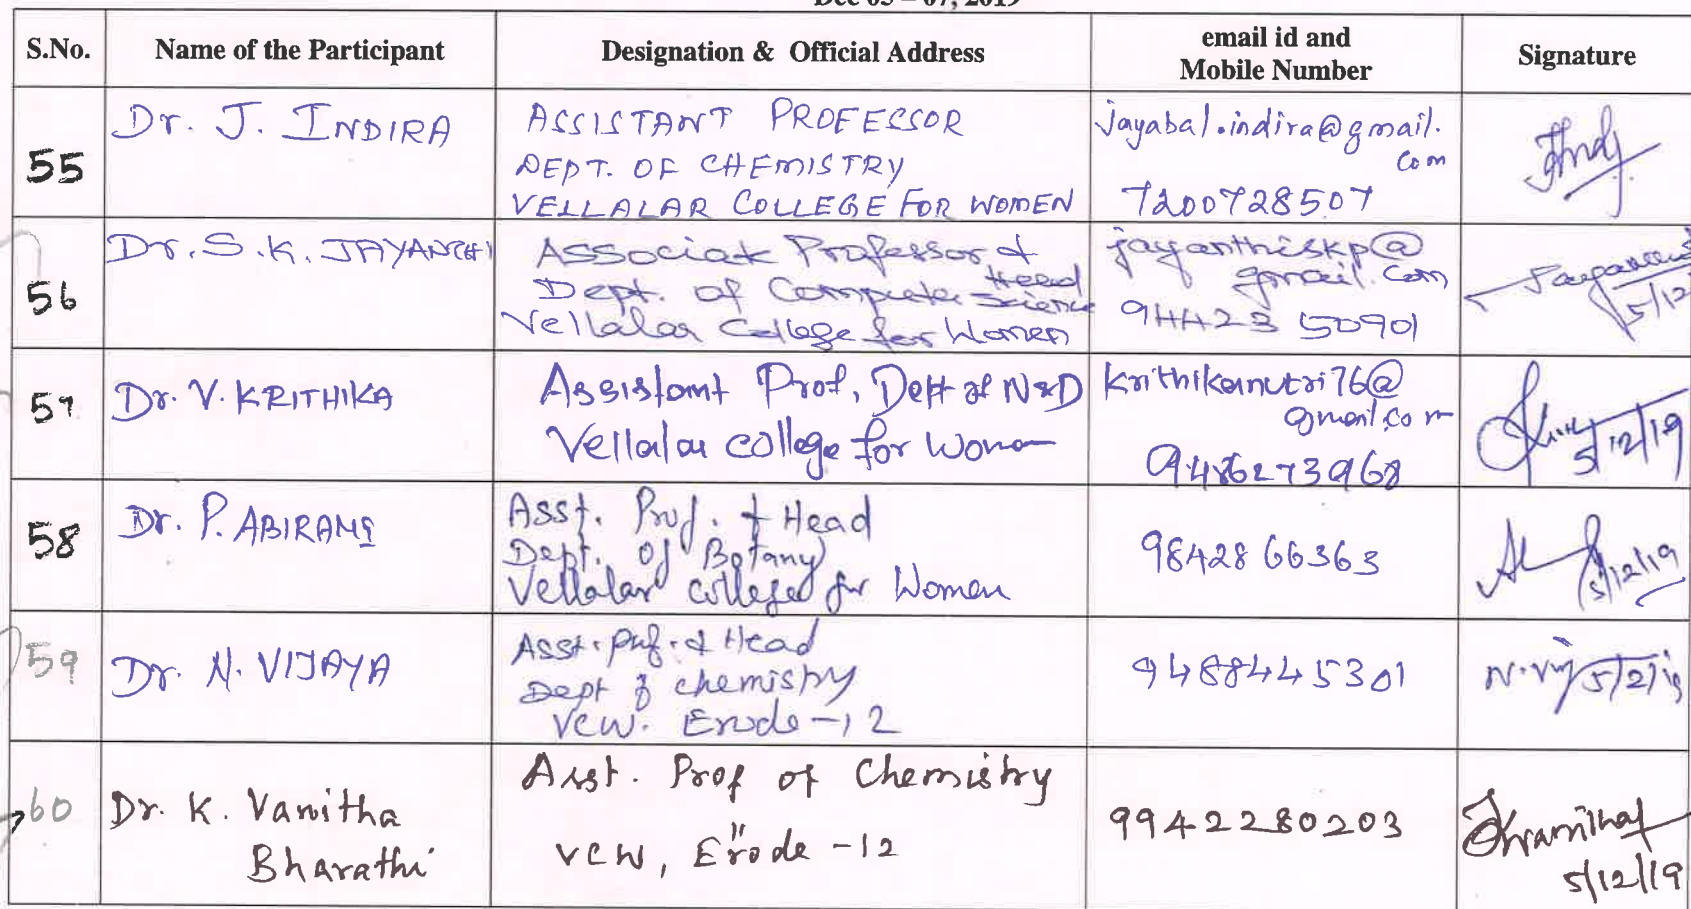 Dec 05 – 07, 2019
S.No. Name of the Participant Designation & Official Address email id and Mobile Number Signature
55 Dr. J. INDIRA ASSISTANT PROFESSOR
DEPT. OF CHEMISTRY
VELLALAR COLLEGE FOR WOMEN
jayabal.indira@gmail.
com
7200728507
56 Dr. S.K. JAYANTHI Associate Professor &
Head
Dept. of Computer Science
Vellalar College for Women
jayanthiskp@
gmail.com
94423 50901
5/12
57 Dr. V. KRITHIKA Assistant Prof, Dept of N&D
Vellalar college for Women
krithikanutri76@
gmail.com
9486273968
5/12/19
58 Dr. P. ABIRAMI Asst. Prof. & Head
Dept. of Botany
Vellalar college for Women
98428 66363
5/12/19
59 Dr. N. VIJAYA Asst. Prof. & Head
Dept of chemistry
VCW. Erode -12
9488445301
N. Vij 5/2/19
60 Dr. K. Vanitha
Bharathi
Asst. Prof of Chemistry
VCW, Erode -12
9942280203
KVanitha
5/12/19